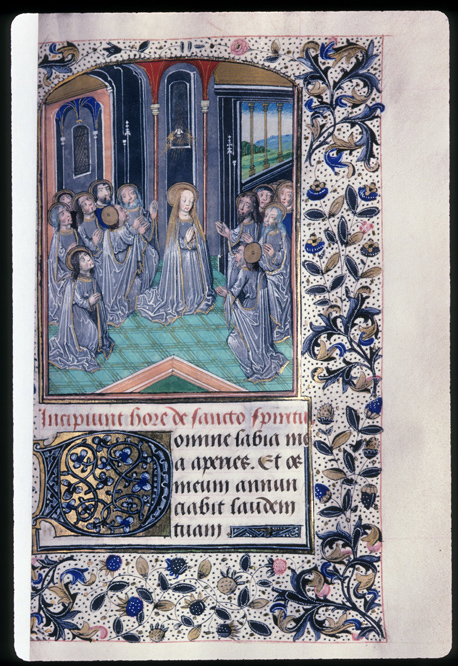 Incipiunt hore de sancto spiritu
Domine labia me
a aperies. Et os
meum annun
ciabit laudem
tuam